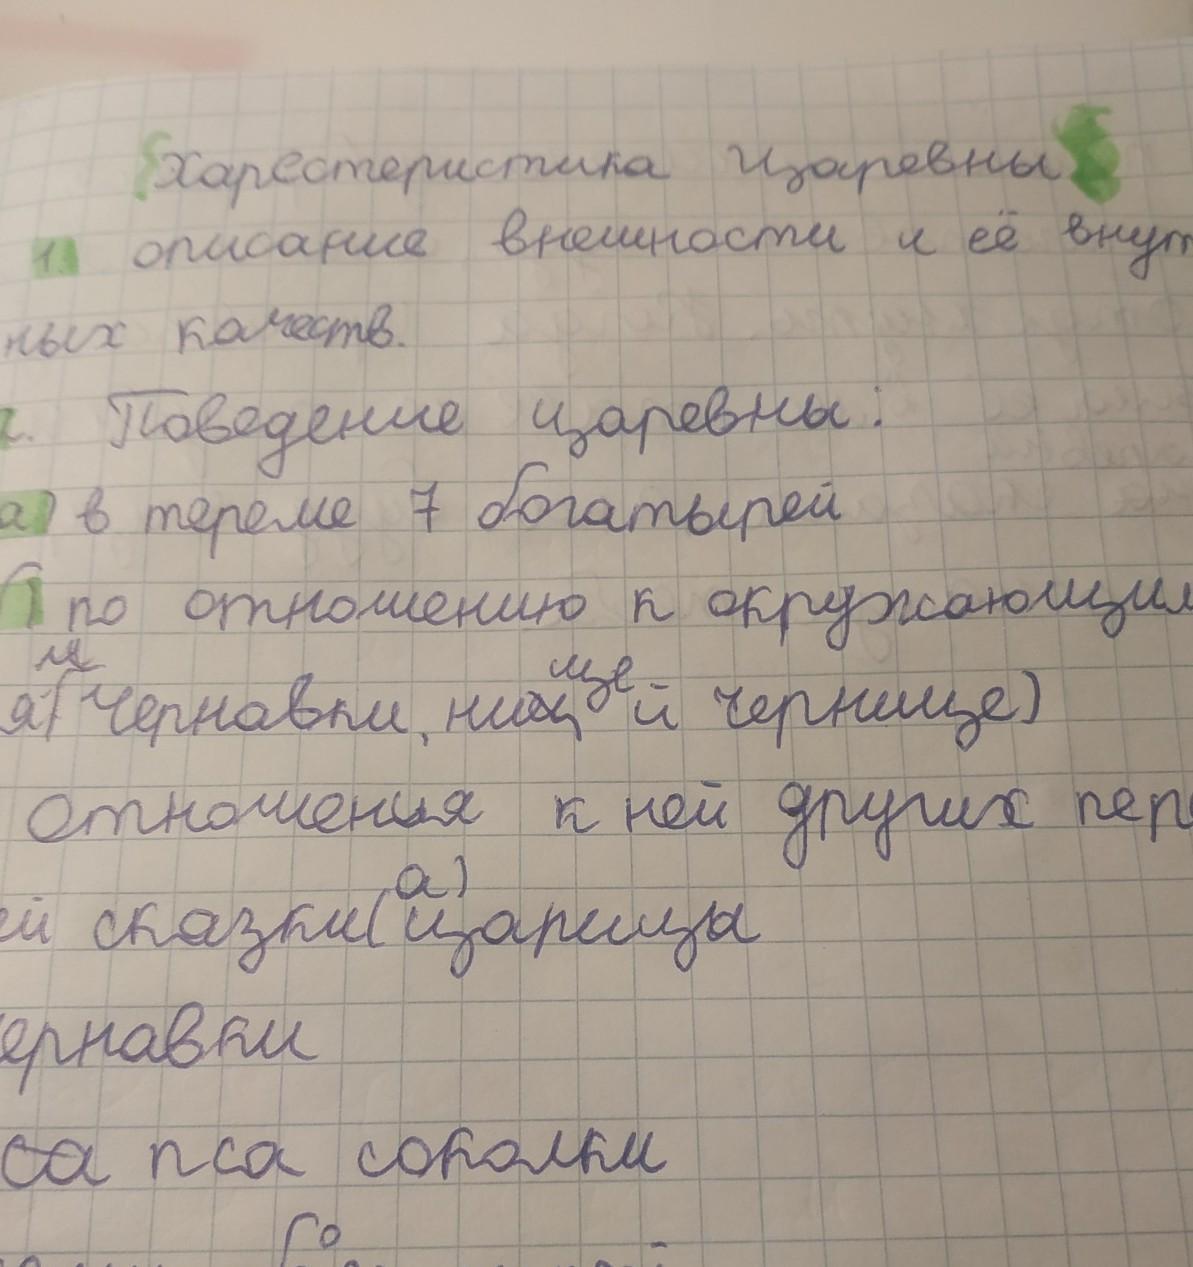 Харестеристика Царевны
1. описание внешности и её внут
ных качеств.
2. Поведение царевны:
а) в тереме 7 богатырей
б) по отношению к окружающим
я) (Чернавки, нищей чернице)
Отношения к ней других пер
ей сказки (а) царицы
ернавки
са пса соколки